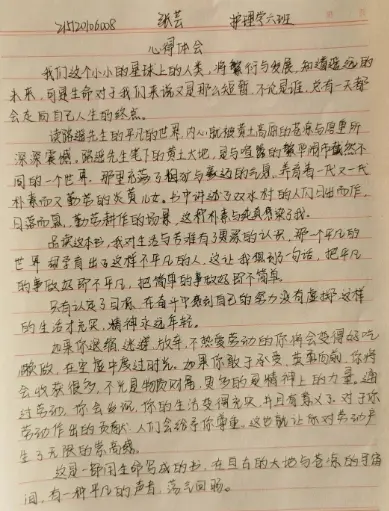 张芸 护理学六班
心得体会
我们这个小小的星球上的人类,将繁衍与发展,知道遥远的
未来,可是生命对于我们来说又是那么短暂,不论是谁,总有一天都
会走向自己人生的终点。
读路遥先生的平凡的世界,内心就被黄土高原的苍凉与厚重所
深深震撼。路遥先生笔下的黄土大地,是与喧嚣的繁华闹市截然不
同的一个世界,那里充满了粗犷与豪迈的气息,养育着一代又一代
朴素而又勤劳的炎黄儿女。书中讲述了双水村的人们日出而作
日落而息,勤劳耕作的场景,这种朴素与纯真感染了我。
品读这本书,我对生活与苦难有了更深的认识,那一个平凡的
世界孕育出了这样不平凡的人,这让我想到一句话,把平凡
的事做好即不平凡,把简单的事做好即不简单。
只有认定了目标,在奋斗中感到自己的努力没有虚掷,这样
的生活才充实,精神永远年轻。
如果你退缩,迷惘,放弃,不热爱劳动的你将会变得好吃
懒做,在空虚中度过时光。如果你敢于承受,英勇向前,你将
会收获很多,不光是物质财富,更多的是精神上的力量,通
过劳动,你会发现,你的生活变得充实,并且有意义了,对于你
劳动作出的贡献,人们会给予你尊重,这也就让你对劳动产
生了无限的崇高感。
这是一部用生命写成的书,在亘古的大地与苍凉的宇宙
间,有一种平凡的声音,荡气回肠。